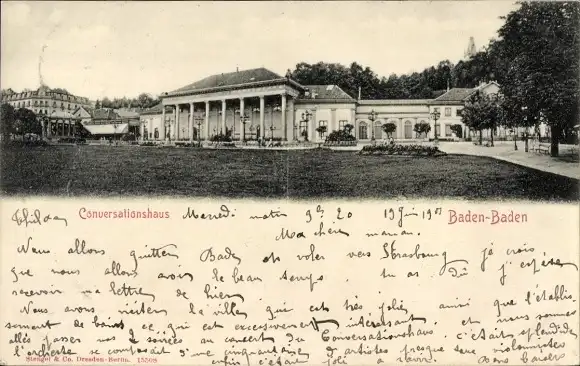 Conversationshaus
Mercredi matin 9h 20 19 Juin 1901
Baden-Baden
Ma chère maman.
Nous allons quitter Bade et voler vers Strasbourg je crois
que nous allons avoir de beau temps. tu as dû j'espère
recevoir ma lettre de hier.
Nous avons visiter la ville qui est très jolie ainsi que l'établis-
sement de bains ce qui est excessivement intéressant, et nous sommes
allés passer nos soirées au concert du Conversationshaus. c'était splendide
l'orchestre se composait d'une cinquantaine d'artistes presque tous violonistes
enfin c'était joli à ravir. Bons baisers
Stengel & Co. Dresden-Berlin. 15508